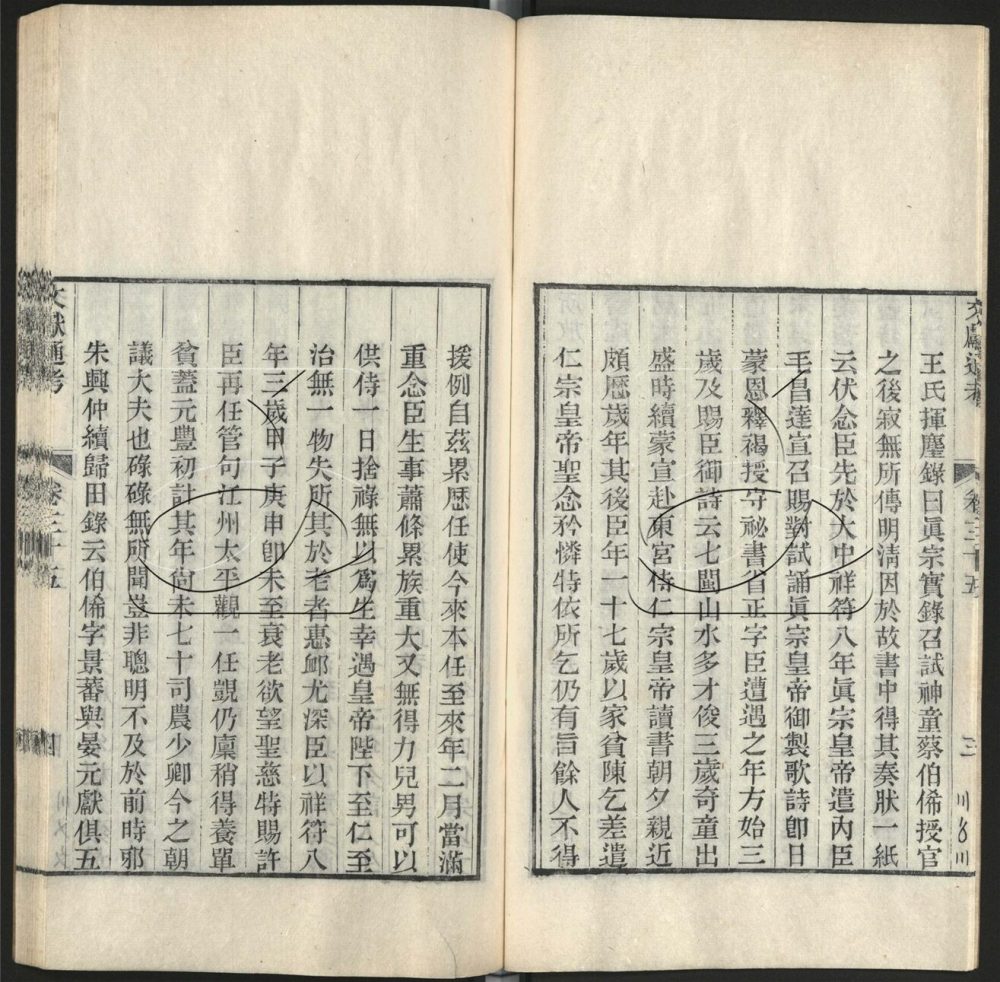 文獻通考
卷三十五
三
王氏揮麈錄曰眞宗實錄召試神童蔡伯俙授官
之後寂無所傳明淸因於故書中得其奏狀一紙
云伏念臣先於大中祥符八年眞宗皇帝遣內臣
毛昌達宣召賜對試誦眞宗皇帝御製歌詩卽日
蒙恩釋褐授守祕書省正字臣遭遇之年方始三
歲及賜臣御詩云七閩山水多才俊三歲奇童出
盛時續蒙宣赴東宮侍仁宗皇帝讀書朝夕親近
頗歷歲年其後臣年一十七歲以家貧陳乞差遣
仁宗皇帝聖念矜憐特依所乞仍有旨餘人不得
援例自茲累歷任使今來本任至來年二月當滿
重念臣生事蕭條累族重大又無得力兒男可以
供侍一日捨祿無以爲生幸遇皇帝陛下至仁至
治無一物失所其於老者惠卹尤深臣以祥符八
年三歲甲子庚申卽未至衰老欲望聖慈特賜許
臣再任管句江州太平觀一任覬仍廩稍得養單
貧蓋元豐初計其年尙未七十司農少卿今之朝
議大夫也碌碌無所聞豈非聰明不及於前時邪
朱興仲續歸田錄云伯俙字景蕃與晏元獻俱五
文獻通考
卷三十五